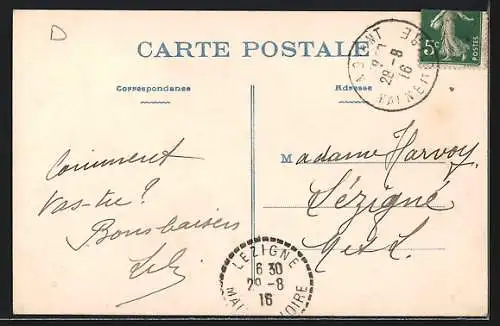 D
CARTE POSTALE
Correspondance
Adresse
5c
POSTES
28 - 8
16
Comment
vas-tu?
Bons baisers
Madame Harvoy
Lézigné
M et L
LEZIGNE
6 30
29 - 8
16